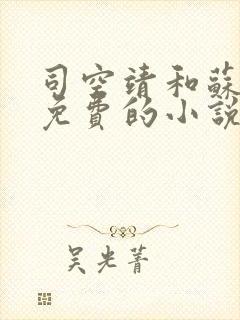 司空靖和蘇
免費的小說
吴光菁